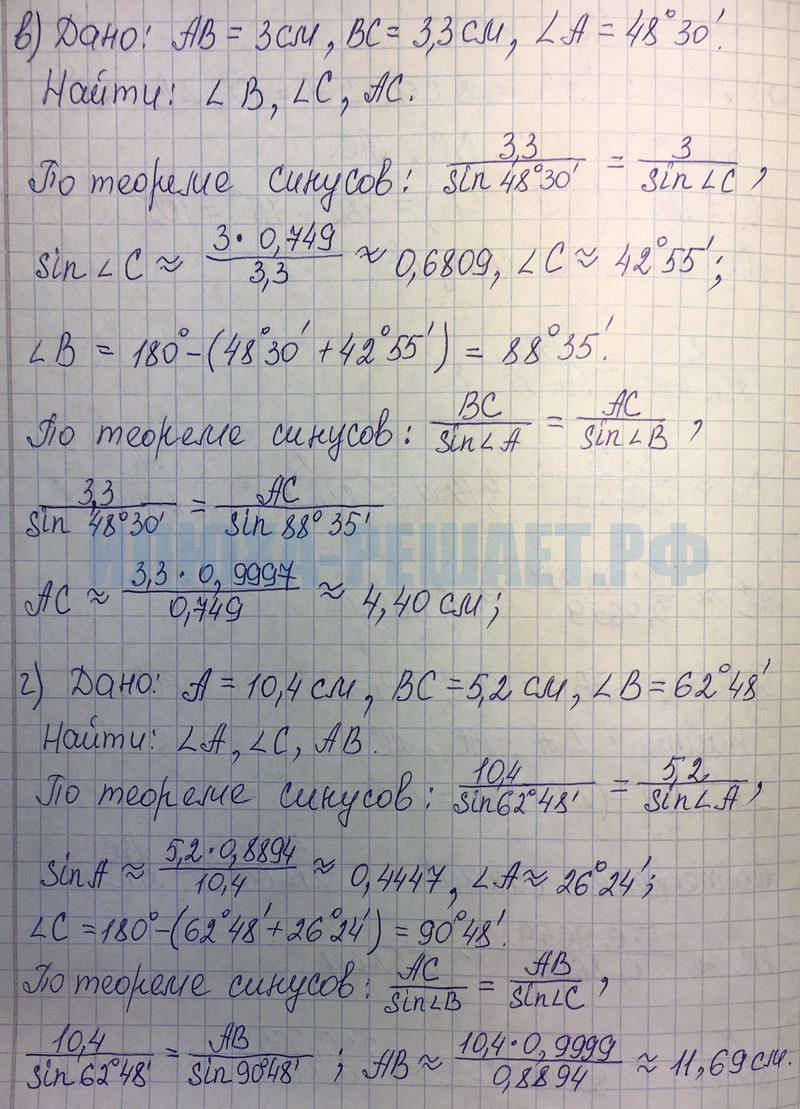 в) Дано: AB = 3 см, BC = 3,3 см, ∠A = 48°30'.
Найти: ∠B, ∠C, AC.
По теореме синусов: 3,3/sin 48°30' = 3/sin∠C,
sin∠C ≈ 3·0,749/3,3 ≈ 0,6809, ∠C ≈ 42°55';
∠B = 180° - (48°30' + 42°55') = 88°35'.
По теореме синусов: BC/sin∠A = AC/sin∠B,
3,3/sin 48°30' = AC/sin 88°35'
ИЛЮХА-РЕШАЕТ.РФ
AC ≈ 3,3·0,9997/0,749 ≈ 4,40 см;
г) Дано: A = 10,4 см, BC = 5,2 см, ∠B = 62°48'
Найти: ∠A, ∠C, AB.
По теореме синусов: 10,4/sin62°48' = 5,2/sin∠A,
sinA ≈ 5,2·0,8894/10,4 ≈ 0,4447, ∠A ≈ 26°24';
∠C = 180° - (62°48' + 26°24') = 90°48'.
По теореме синусов: AC/sin∠B = AB/sin∠C,
10,4/sin62°48' = AB/sin90°48' ; AB ≈ 10,4·0,9999/0,8894 ≈ 11,69 см.